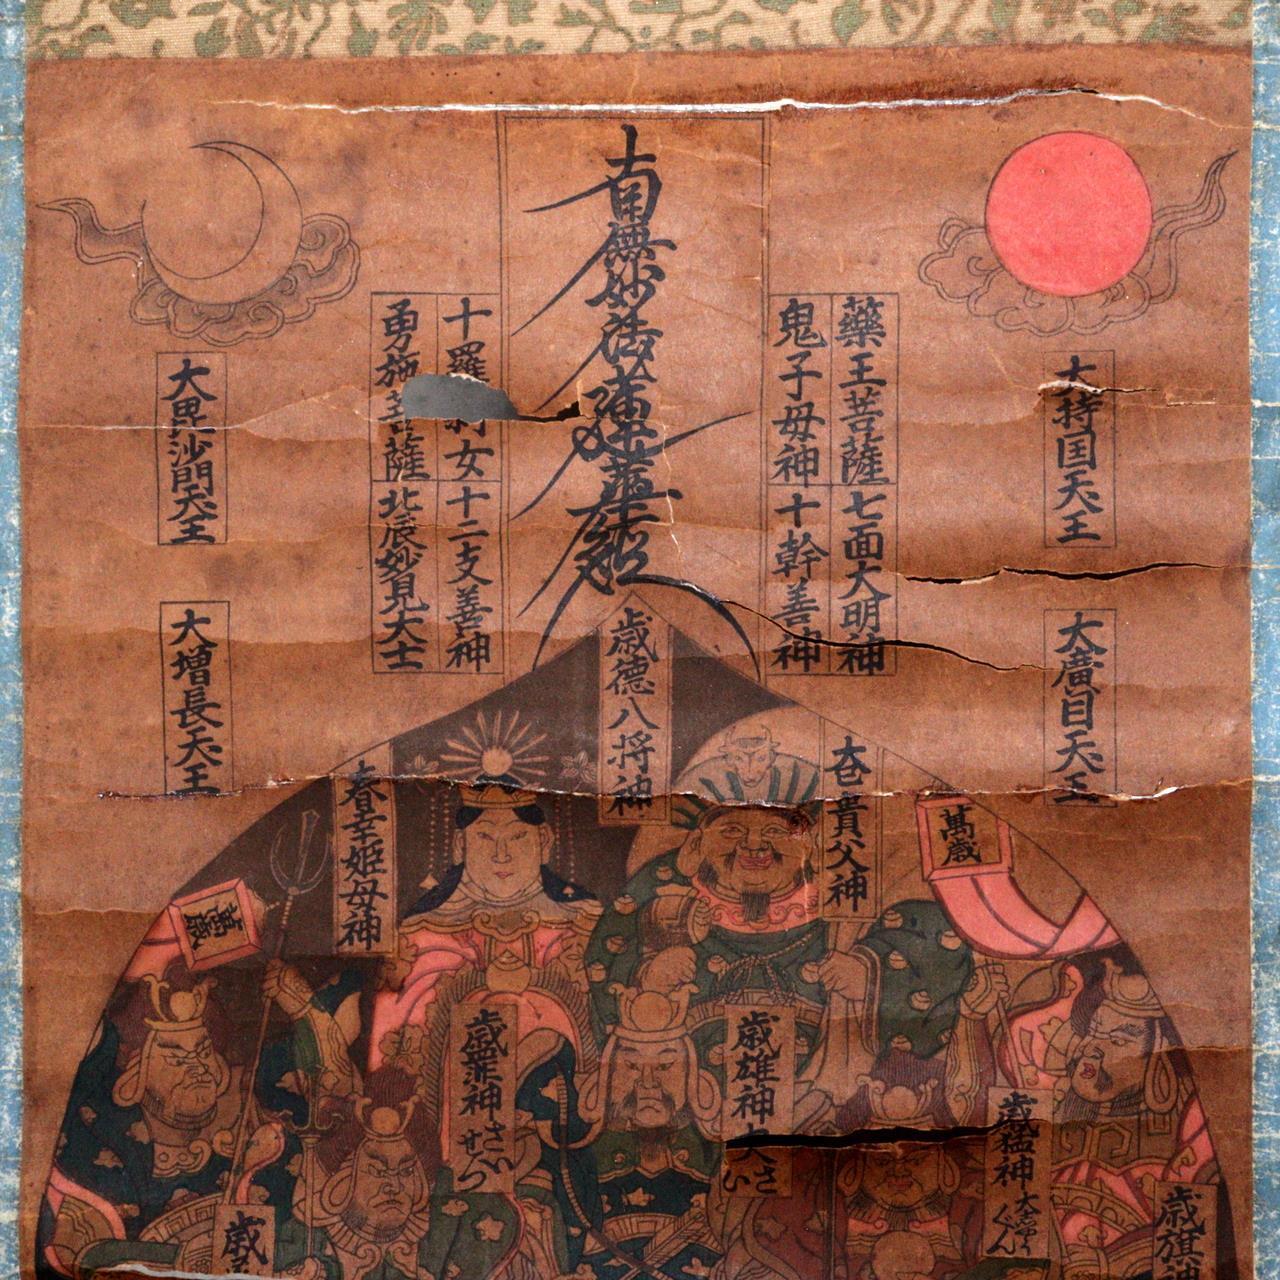 南無妙法蓮華経
大持国天王
大廣目天王
藥王菩薩
七面大明神
鬼子母神
十幹善神
十羅
女
十二支善神
勇施菩薩
北辰妙見大士
大毘沙門天王
大増長天王
歳徳八将神
貴父神
春幸姫母神
萬歳
萬歳
歳猛神
歳雄神
大さい
歳罪神
さいせつ
歳旗
歳